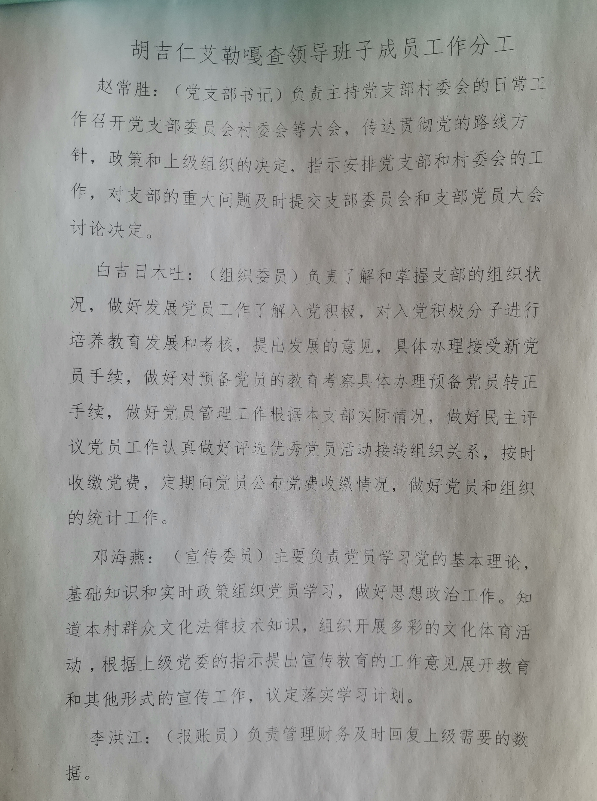 胡吉仁艾勒嘎查领导班子成员工作分工
赵常胜：（党支部书记）负责主持党支部村委会的日常工
作召开党支部委员会村委会等大会，传达贯彻党的路线方
针，政策和上级组织的决定，指示安排党支部和村委会的工
作，对支部的重大问题及时提交支部委员会和支部党员大会
讨论决定。
白吉日木吐：（组织委员）负责了解和掌握支部的组织状
况，做好发展党员工作了解入党积极，对入党积极分子进行
培养教育发展和考核，提出发展的意见，具体办理接受新党
员手续，做好对预备党员的教育考察具体办理预备党员转正
手续，做好党员管理工作根据本支部实际情况，做好民主评
议党员工作认真做好评选优秀党员活动接转组织关系，按时
收缴党费，定期向党员公布党费收缴情况，做好党员和组织
的统计工作。
邓海燕：（宣传委员）主要负责党员学习党的基本理论，
基础知识和实时政策组织党员学习，做好思想政治工作。知
道本村群众文化法律技术知识，组织开展多彩的文化体育活
动，根据上级党委的指示提出宣传教育的工作意见展开教育
和其他形式的宣传工作，议定落实学习计划。
李洪江：（报账员）负责管理财务及时回复上级需要的数
据。